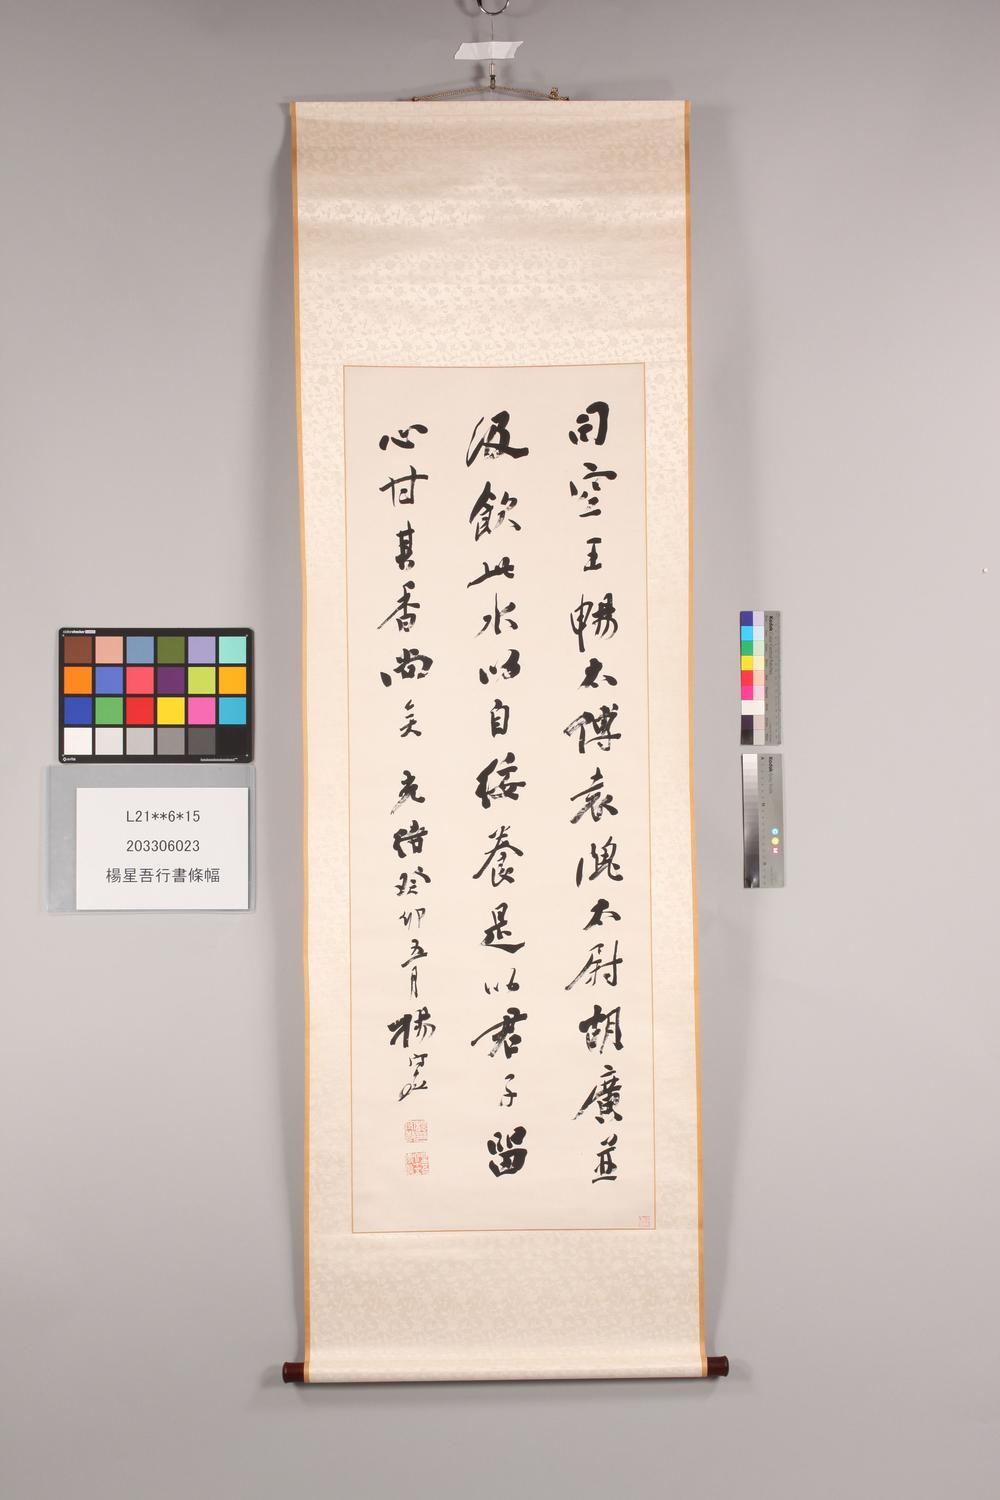 司空王暢太傅袁隗太尉胡廣並
汲飲此水以自綏養是以君子留
心甘其香尚矣 光緒癸卯五月楊守敬
L21**6*15
203306023
楊星吾行書條幅